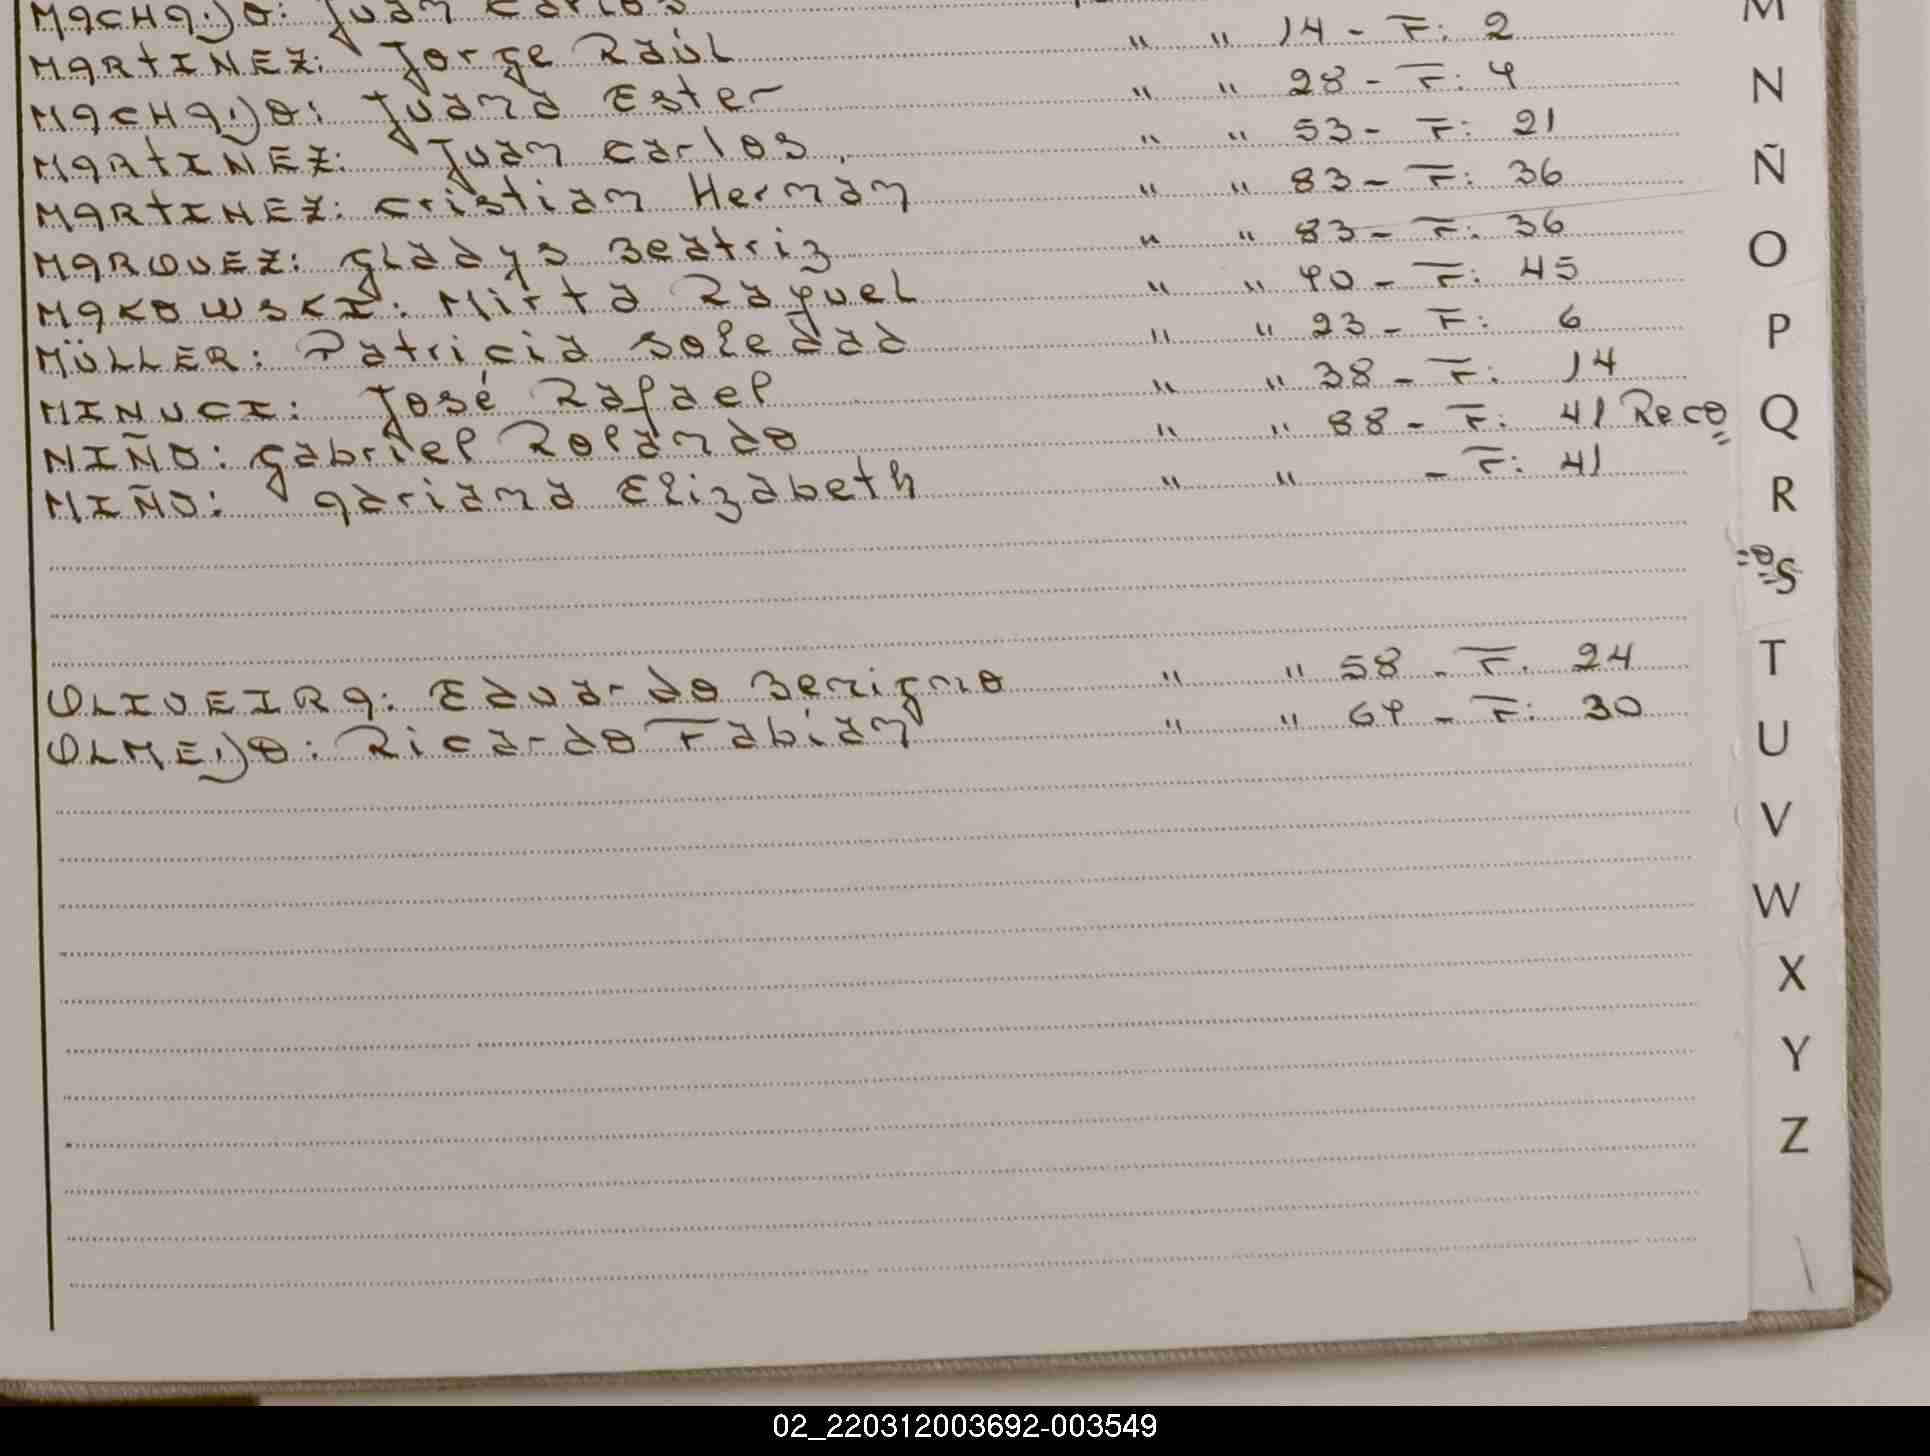 MACHADO: Juan Carlos
MARTINEZ: Jorge Raúl " " 14 - F: 2
MACHADO: Juana Ester " " 28 - F: 9
MARTINEZ: Juan Carlos. " " 53 - F: 21
MARTINEZ: Cristian Hernan " " 83 - F: 36
MARQUEZ: Gladys Beatriz " " 83 - F: 36
MAKOWSKI: Mirta Raquel " " 90 - F: 45
MÜLLER: Patricia Soledad " " 23 - F: 6
MINUCI: José Rafael " " 38 - F: 14
NIÑO: Gabriel Rolando " " 88 - F: 41 Reco
MIÑO: Mariana Elizabeth " " - F: 41
OLIVEIRA: Eduardo Benigno " " 58 - F. 24
OLMEDO: Ricardo Fabián " " 69 - F: 30
M
N
Ñ
O
P
Q
R
S
T
U
V
W
X
Y
Z
02_220312003692-003549